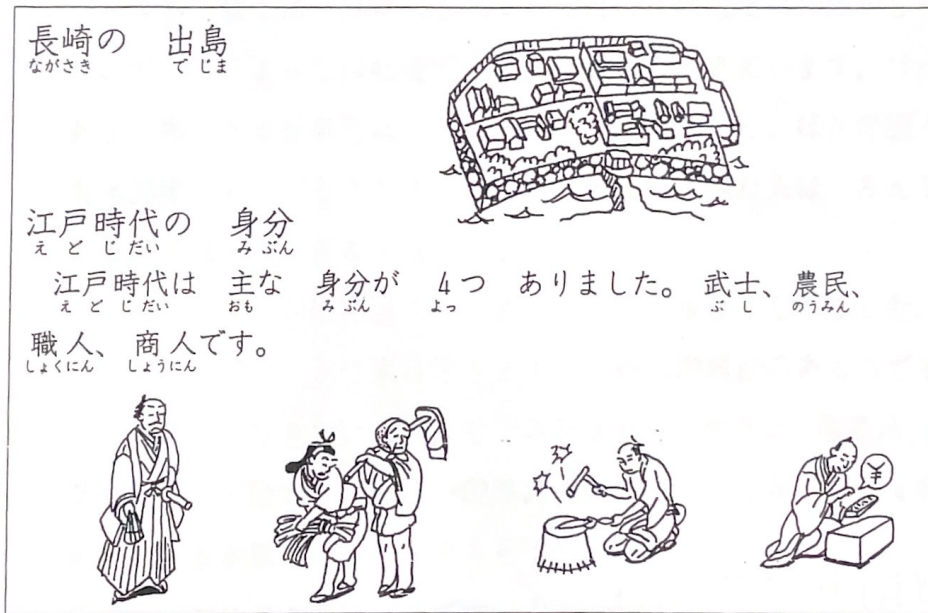 長崎の 出島
ながさき でじま
江戸時代の 身分
えどじだい みぶん
江戸時代は 主な 身分が 4つ ありました。 武士、農民、
えどじだい おも みぶん よっ ぶし のうみん
職人、 商人です。
しょくにん しょうにん
¥